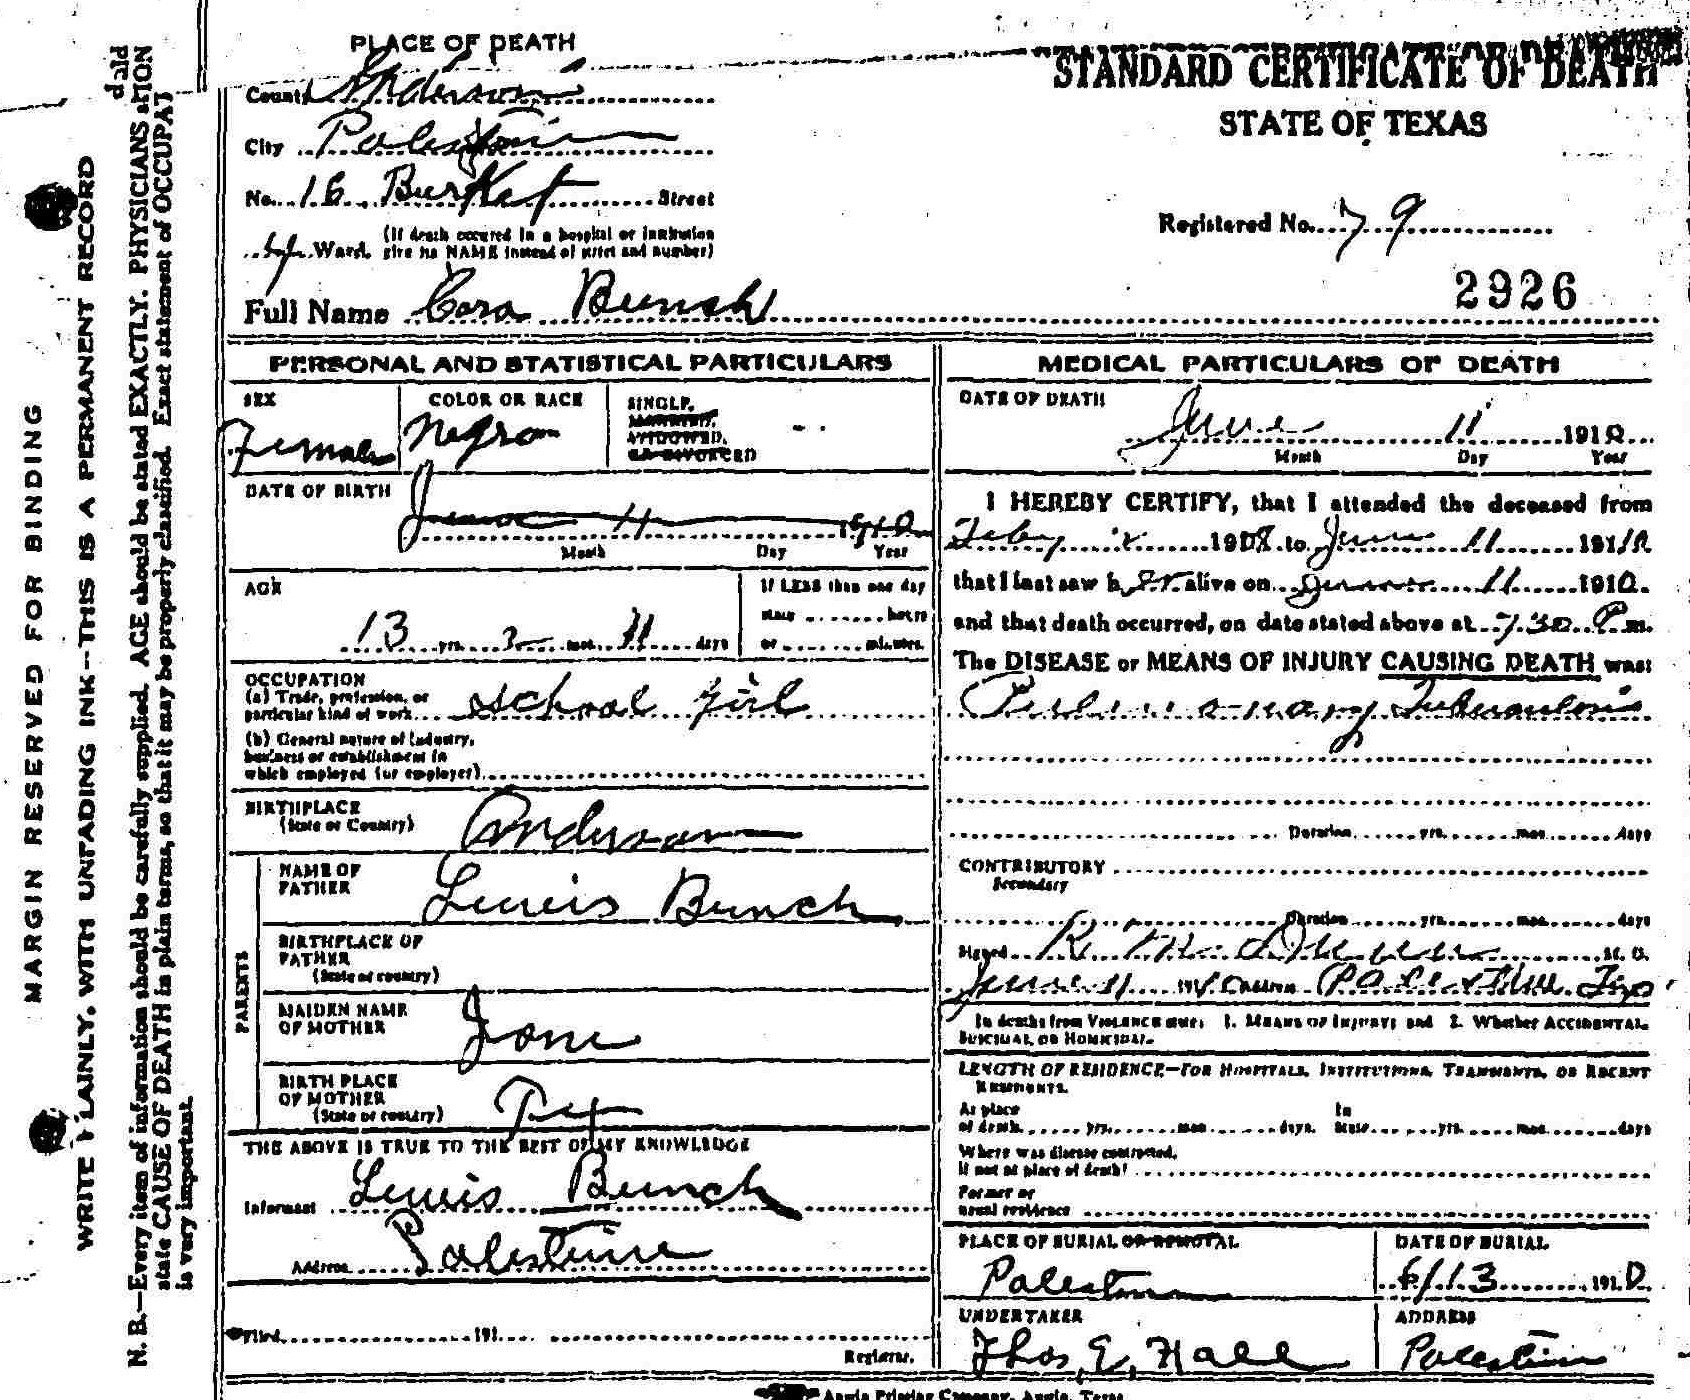 PLACE OF DEATH
County Anderson
City Palestine
No. 16 Burket Street
4 Ward. (If death occured in a hospital or institution give its NAME instead of street and number)
Full Name Cora Bunch
STANDARD CERTIFICATE OF DEATH
STATE OF TEXAS
Registered No. 79
2926
PERSONAL AND STATISTICAL PARTICULARS
SEX
Female
COLOR OR RACE
Negro
SINGLE,
MARRIED,
WIDOWED,
OR DIVORCED
DATE OF BIRTH
June 11 1910
Month Day Year
AGE
13 yrs. 3 mos. 11 days
If LESS than one day
hours
or minutes.
OCCUPATION
(a) Trade, profession, or
particular kind of work School girl
(b) General nature of Industry,
business or establishment in
which employed (or employer)
BIRTHPLACE
(State or Country) Anderson
PARENTS
NAME OF
FATHER Lewis Bunch
BIRTHPLACE OF
FATHER
(State or country)
MAIDEN NAME
OF MOTHER Jane
BIRTH PLACE
OF MOTHER
(State or country) Tex
THE ABOVE IS TRUE TO THE BEST OF MY KNOWLEDGE
Informant Lewis Bunch
Address Palestine
Filed 191
Registrar.
MEDICAL PARTICULARS OF DEATH
DATE OF DEATH
June 11 1910
Month Day Year
I HEREBY CERTIFY, that I attended the deceased from
Feby 190 to June 11 1910
that I last saw her alive on June 11 1910
and that death occurred, on date stated above at 7.30 P m.
The DISEASE or MEANS OF INJURY CAUSING DEATH was:
Pulmonary Tuberculosis
Duration yrs. mos. days
CONTRIBUTORY
Secondary
Duration yrs. mos. days
Signed R. M. Dunn M. D.
June 11 1910 Address Palestine Tex
In deaths from VIOLENCE state: 1. MEANS OF INJURY; and 2. Whether ACCIDENTAL,
SUICIDAL, OR HOMICIDAL.
LENGTH OF RESIDENCE—FOR HOSPITALS, INSTITUTIONS, TRANSIENTS, OR RECENT
RESIDENTS.
At place
of death yrs. mos. days. In
State yrs. mos. days
Where was disease contracted,
if not at place of death?
Former or
usual residence
PLACE OF BURIAL OR REMOVAL
Palestine
DATE OF BURIAL
6/13 1910
UNDERTAKER
Thos. E. Hall
ADDRESS
Palestine
Angle Printing Company, Angle, Texas
MARGIN RESERVED FOR BINDING
WRITE PLAINLY, WITH UNFADING INK—THIS IS A PERMANENT RECORD
N. B.—Every item of information should be carefully supplied. AGE should be stated EXACTLY. PHYSICIANS should
state CAUSE OF DEATH in plain terms, so that it may be properly classified. Exact statement of OCCUPATION
is very important.